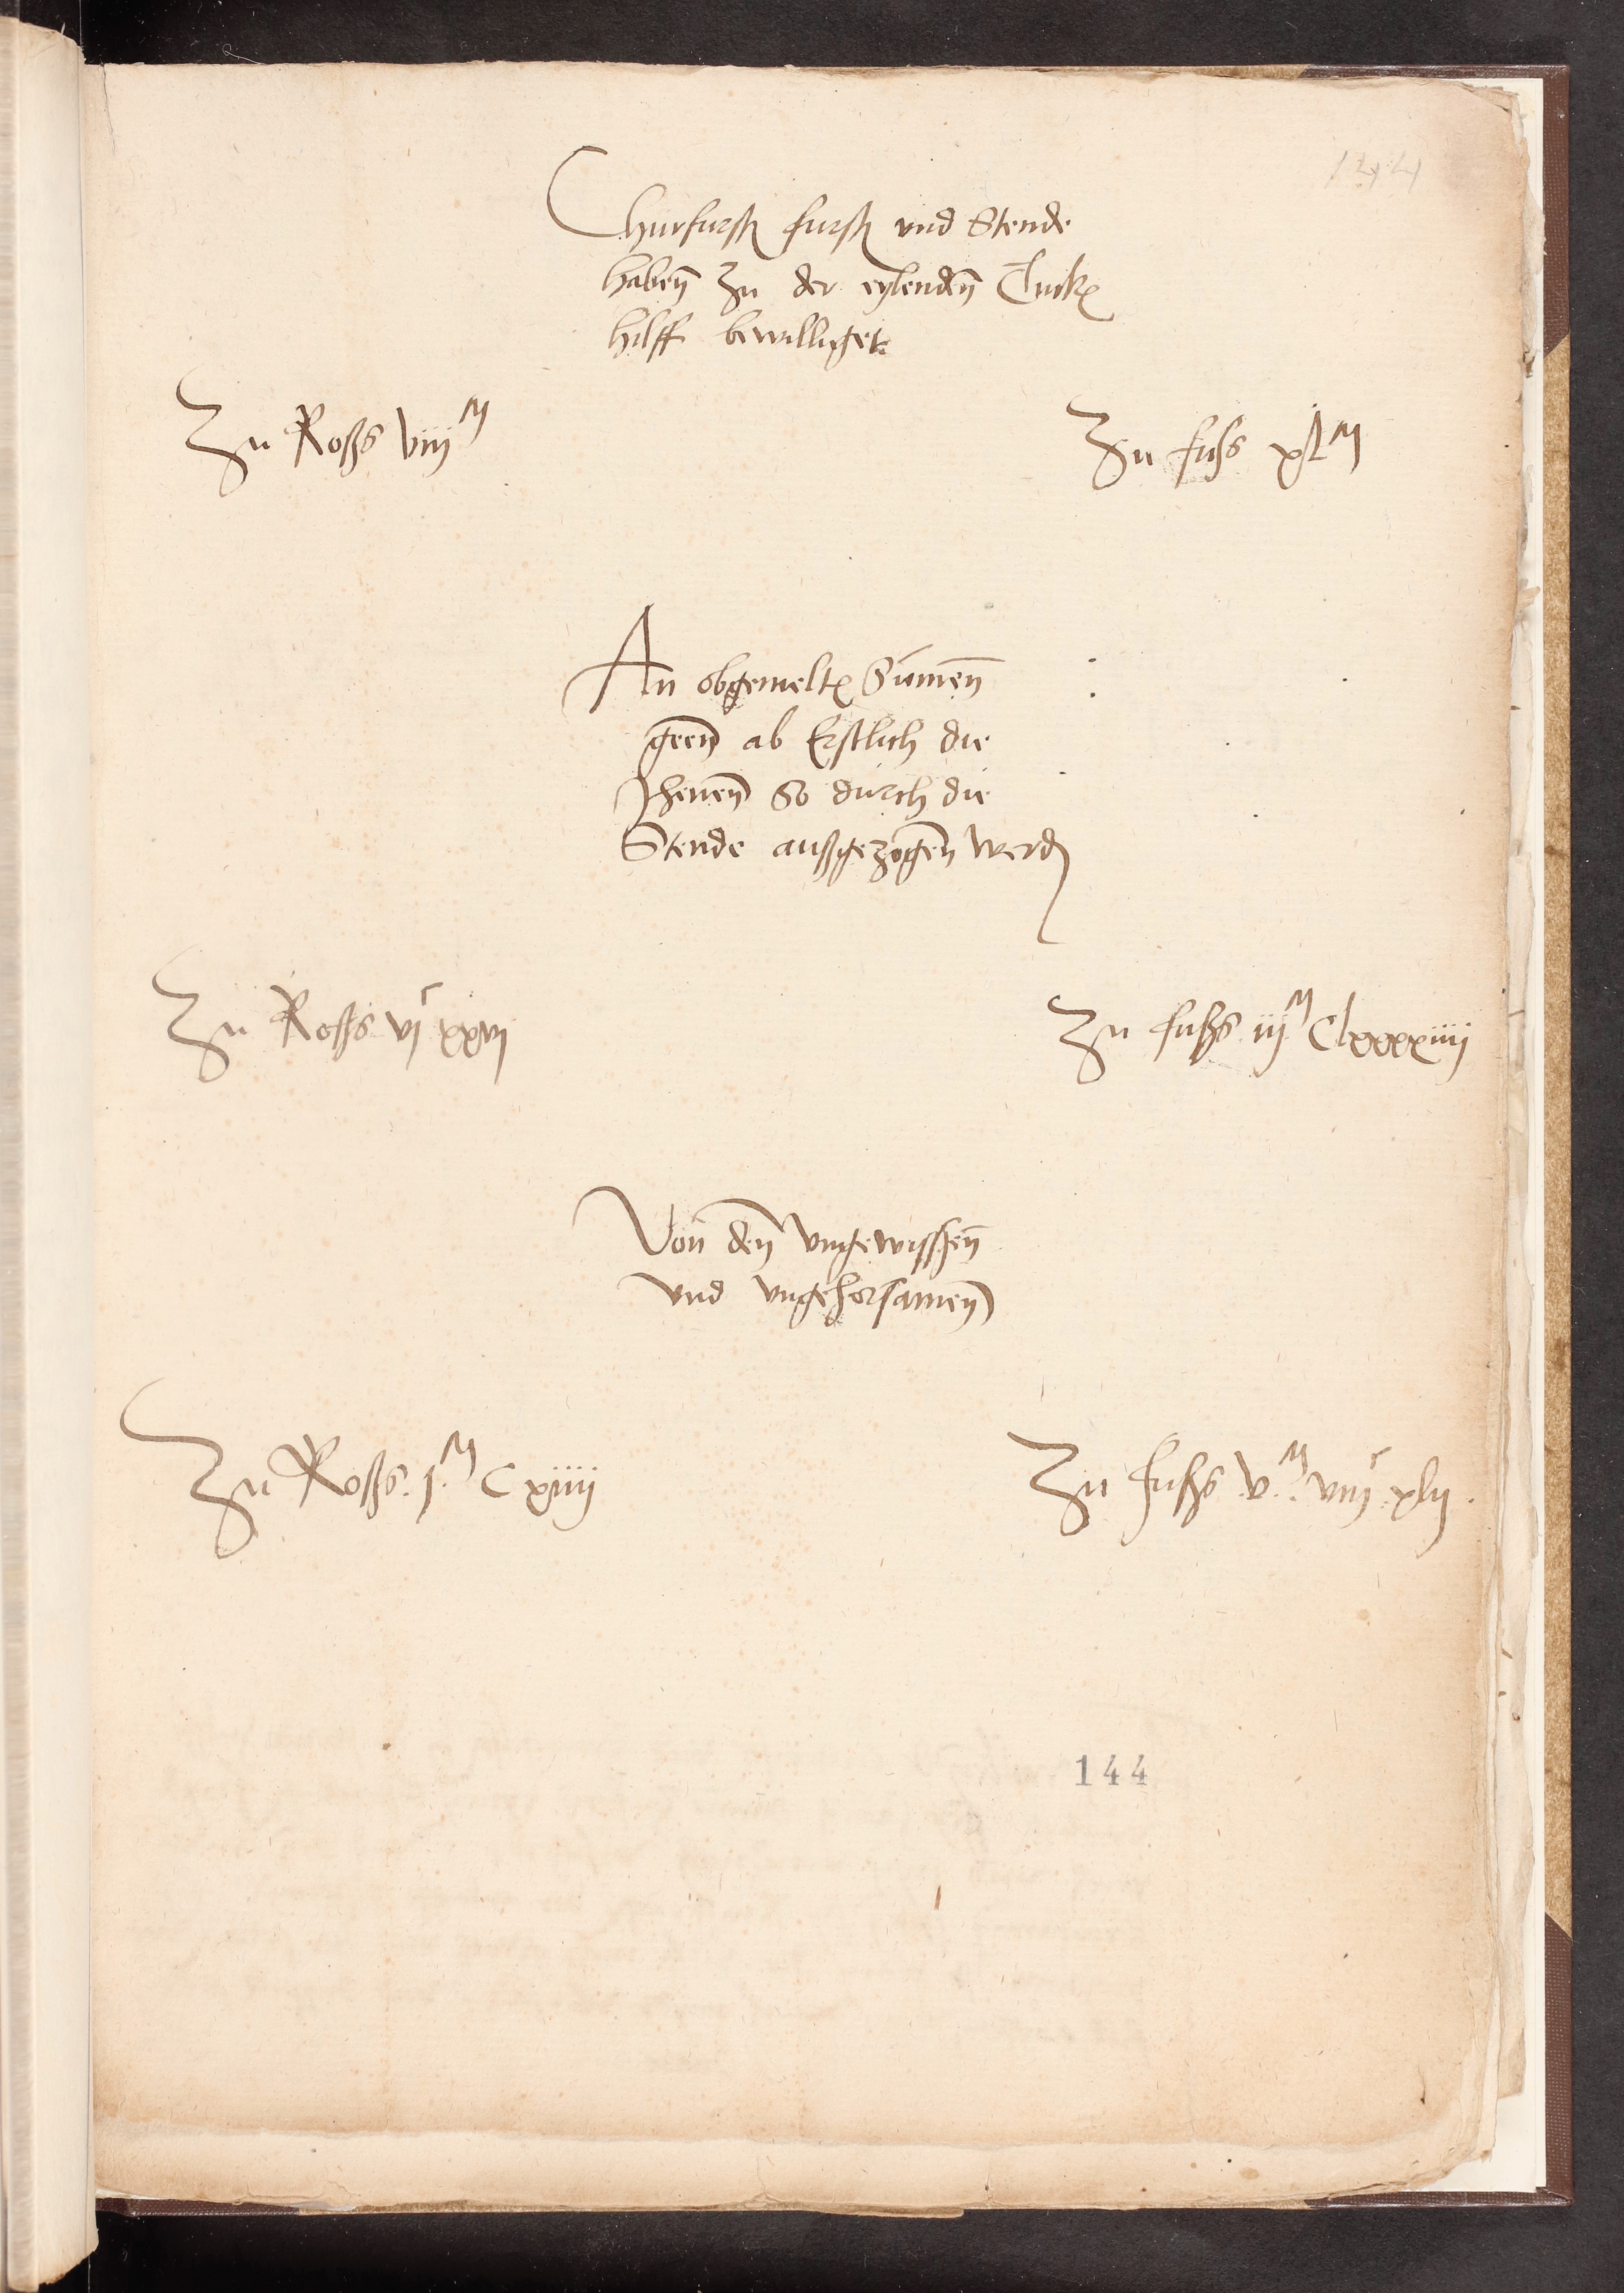 144
Churfurst furst vnd Stende
haben zu der eylenden Turck
hilff bewilliget
Zu Roßs viijM
Zu fuss xlM
An obgemelte Sumen
geen ab Erstlich die
Jhenen So durch die
Stende außgezogen werd
Zu Roßs vjc xxvj
Zu fußs iijM Clxxxxiiij
Von den vngewissen
vnd vngehorsamen
Zu Roßs. j.M C xiiij
Zu fußs .v.M. viijc xlij.
144